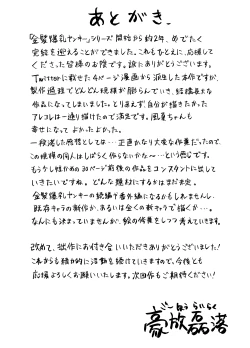 あとがき
「金髪爆乳ヤンキー」シリーズ開始から約2年、めでたく
完結を迎えることができました。これもひとえに、応援して
くださった皆様のお陰です。誠にありがとうございます。
Twitterに載せた4ページ漫画から派生した本作ですが、
製作過程でどんどん規模が膨らんでいき、結構長大な
作品になってしまいました。とりあえず、自分が描きたかった
アレコレは一通り描けたので満足です。風夏ちゃんも
幸せになって よかった よかった。
一段落した感想としては…正直かなり大変な作業だったので、
この規模の同人はしばらく作らないかな〜…という感じです。
もう少し短めの30ページ前後の作品をコンスタントに出して
いきたいですね。どんな題材にするかはまだ未定。
金髪爆乳ヤンキーの続編や番外編になるかもしれませんし、
既存キャラの新作か、あるいは全くの新キャラで描くか…。
なんにも決まっていませんが、絵の修業をしつつ考えていきます。
改めて、拙作にお付き合いいただきありがとうございました!
これからも精力的に活動を続けていきますので、今後とも
応援よろしくお願いいたします。次回作もご期待ください!
豪放磊落